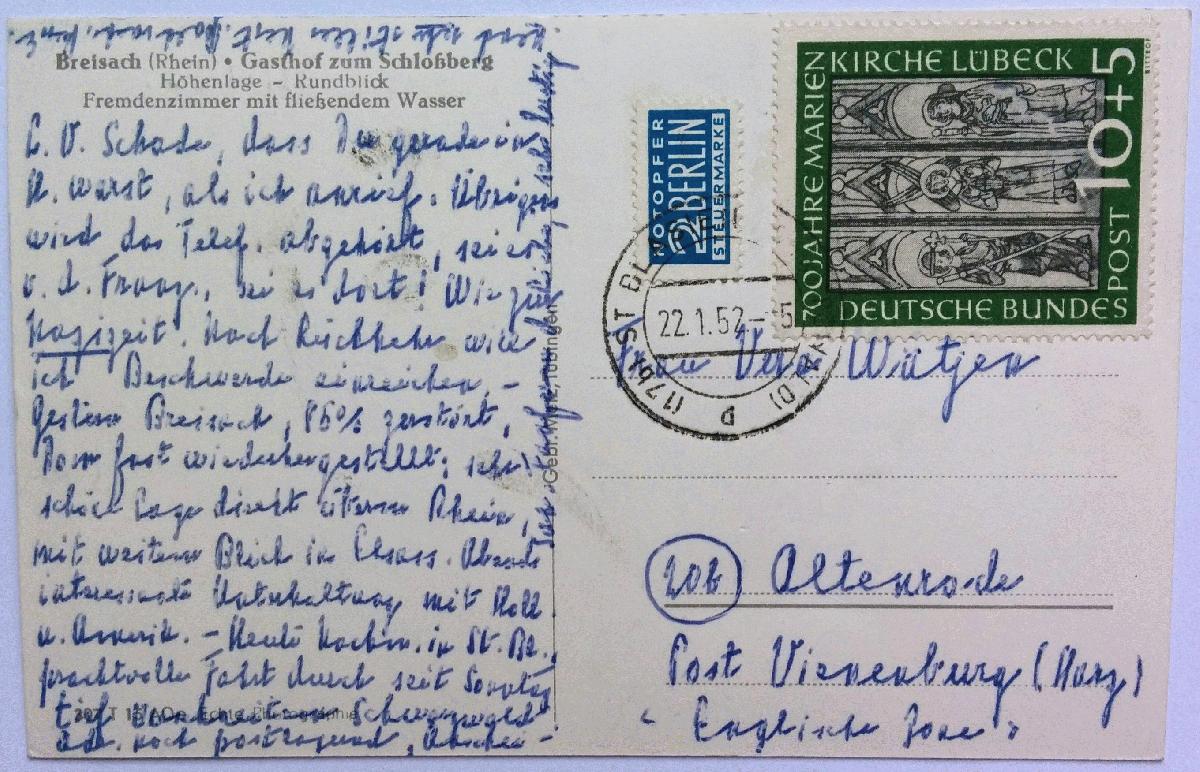 Breisach (Rhein) • Gasthof zum Schloßberg
Höhenlage – Rundblick
Fremdenzimmer mit fließendem Wasser
L. V. Schade, dass Du gerade in
H. warst, als ich anrief. Übrigens
wird das Telef. abgehört, sei es
v. d. Franz., sei es dort! Wie zur
Nazizeit. Nach Rückkehr will
ich Beschwerde einreichen. –
Gestern Breisach, 85% zerstört,
Dom fast wiederhergestellt; sehr
schöne Lage direkt überm Rhein,
mit weitem Blick ins Elsass. Abends
interessante Unterhaltung mit Holl.
u. Amerik. – Heute Nachm. in St. Bl.,
prachtvolle Fahrt durch seit Sonntag
tief verschneiten Schwarzwald
noch
sehr lustig
sehr stilles
Gebr. Metz, Tübingen
NOTOPFER
2 BERLIN
STEUERMARKE
700 JAHRE MARIEN
KIRCHE LÜBECK
10+5
DEUTSCHE BUNDES
POST
(17b) ST BL
22.1.52
Frau Vera Wätjen
20b Altenrode
Post Vienenburg (Harz)
"Englische Zone"